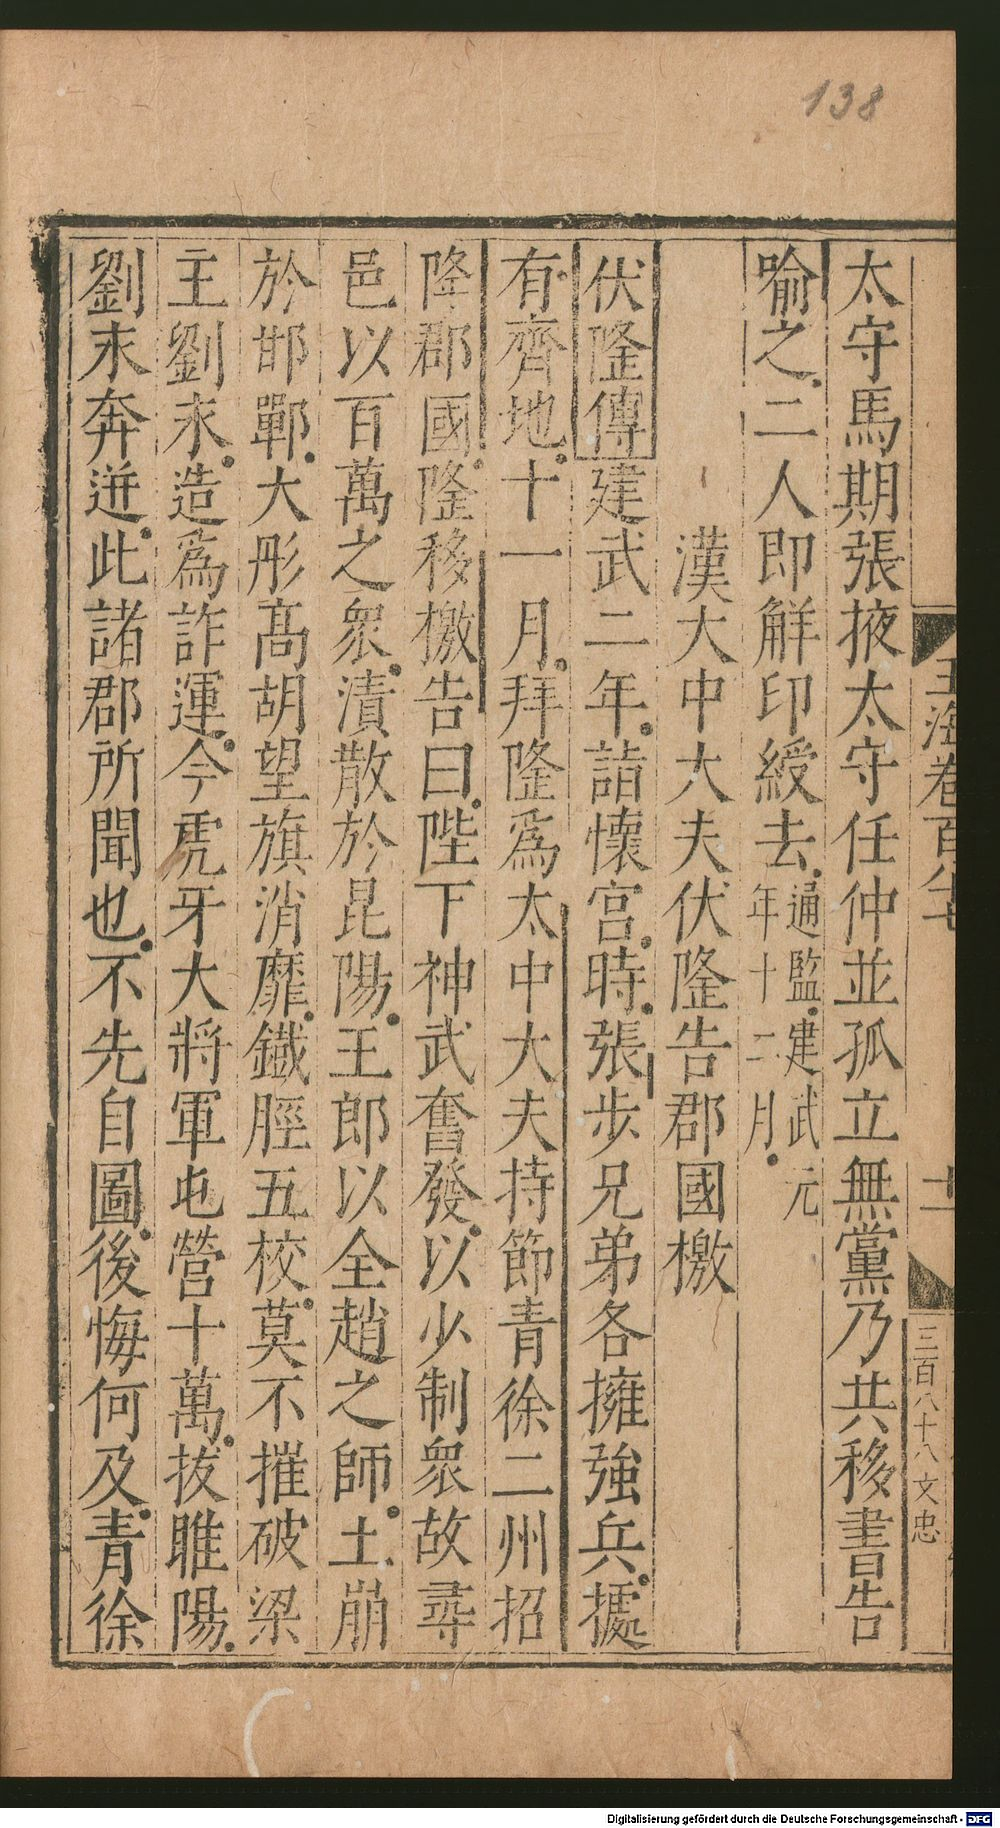 138
太守馬期張掖太守任仲並孤立無黨乃共移書告
喻之二人即解印綬去通監建武元年十二月
漢大中大夫伏隆告郡國檄
伏隆傳建武二年詣懷宮時張步兄弟各擁強兵據
有齊地十一月拜隆為太中大夫持節青徐二州招
降郡國隆移檄告曰陛下神武奮發以少制衆故尋
邑以百萬之衆潰散於昆陽王郎以全趙之師土崩
於邯鄲大彤高胡望旗消靡鐵脛五校莫不摧破梁
主劉永造為詐運今虎牙大將軍屯營十萬拔睢陽
劉永奔迸此諸郡所聞也不先自圖後悔何及青徐
玉海卷百八十七
十一
三百八十八文忠
Digitalisierung gefördert durch die Deutsche Forschungsgemeinschaft - DFG